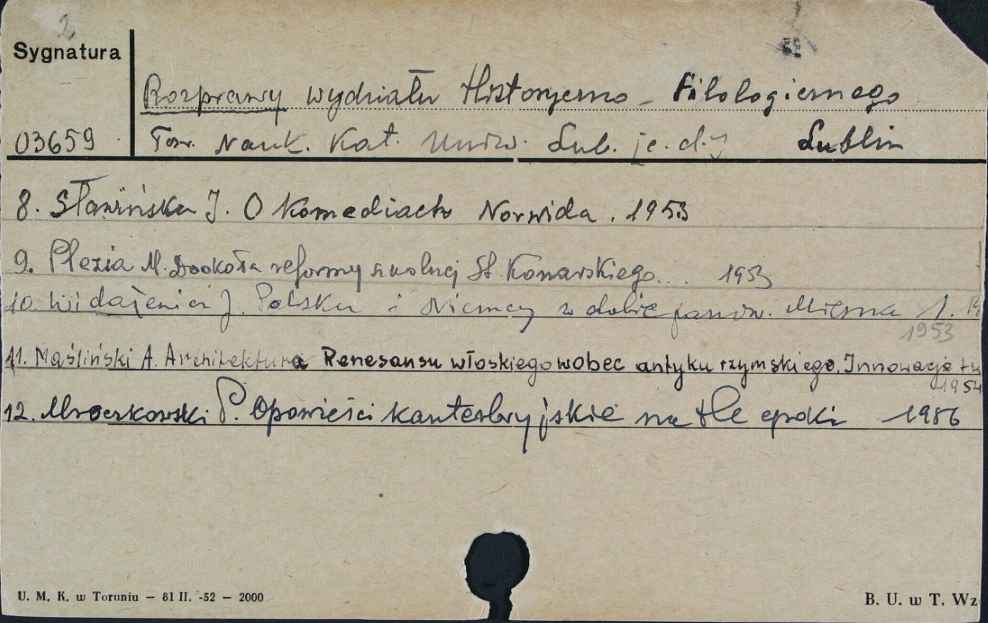 2
Sygnatura
Rozprawy wydziału Historyczno - Filologicznego
03659 Tow. Nauk. Kat. Uniw. Lub. Lublin
8. Sławińska J. O komediach Norwida. 1953
9. Plezia M. Dookoła reformy szkolnej St. Konarskiego... 1953
10. Widajewicz J. Polska i Niemcy w dobie panow. Mieszka I.
1953
11. Maśliński A. Architektura Renesansu włoskiego wobec antyku rzymskiego. Innowacje
1954
12. Mroczkowski P. Opowieści kanterbryjskie na tle epoki 1986
U. M. K. w Toruniu – 81 II. -52 – 2000
B. U. w T. Wz